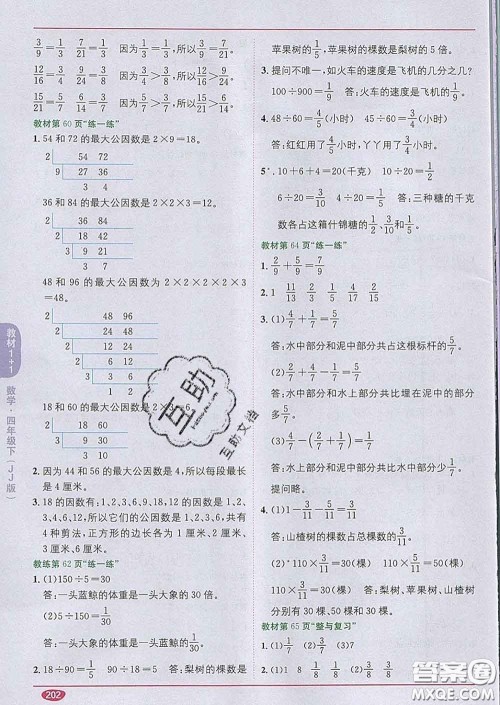 3/9=1/3 7/21=1/3 因为1/3=1/3,所以3/9=7/21。
12/16=3/4 24/36=2/3 因为3/4>2/3,所以12/16>24/36。
15/21=5/7 6/12=1/2 因为5/7>1/2,所以15/21>6/12。
教材第60页“练一练”
1. 54 和 72 的最大公因数是 2×9=18。
2 54 72
9 27 36
3 4
36 和 84 的最大公因数是 2×2×3=12。
2 36 84
2 18 42
3 9 21
3 7
48 和 96 的最大公因数为 2×2×2×2×3
=48。
2 48 96
2 24 48
2 12 24
2 6 12
3 3 6
1 2
18 和 60 的最大公因数是 2×3=6。
2 18 60
3 9 30
3 10
2. 因为 44 和 56 的最大公因数是 4,所以每段最长是 4 厘米。
3. 18 的因数有:1、2、3、6、9、18,12 的因数有:1、2、3、4、6、12,所以它们的公因数有 1、2、3、6,共有 4 种剪法,正方形的边长各为 1 厘米、2 厘米、3 厘米、6 厘米。
教练第62页“练一练”
1. (1)150÷5=30
答:一头蓝鲸的体重是一头大象的 30 倍。
(2)5÷150=1/30
答:一头大象的体重是一头蓝鲸的1/30。
2. 18÷90=1/5 90÷18=5 答:梨树的棵数是
苹果树的1/5,苹果树的棵数是梨树的 5 倍。
3. 提问不唯一,如火车的速度是飞机的几分之几?
100÷900=1/9 答:火车的速度是飞机的1/9。
4. 30÷60=1/2(小时) 45÷60=3/4(小时)
答:红红用了1/2小时,丫丫用了3/4小时。
5*. 10+6+4=20(千克) 10÷20=1/2
6÷20=3/10 4÷20=1/5 答:三种糖的千克
数各占这箱什锦糖的1/2、3/10和1/5。
教材第64页“练一练”
1. 2/9+5/9=7/9
2. 1 11/13 2/5 3/17 4/15 1/2
3. (1)4/7+1/7=5/7
答:水中部分和泥中部分共占这根标杆的5/7。
(2)1/7+2/7=3/7
答:泥中部分和水上部分共比埋在泥中部分的3/7。
(3)4/7-(1/7+2/7)=1/7
答:水上部分和泥中部分共比水中部分少1/7。
提问略。
4. (1)1-3/11-5/11=3/11
答:山楂树的棵数占果树总棵数的3/11。
(2)110×3/11=30(棵) 110×5/11=50(棵)
110×3/11=30(棵) 答:梨树、苹果树、山楂树
分别有 30 棵、50 棵、30 棵。
教材第65页“整与复习”
1. (1)1/7 (2)3/8 (3)2/3
教材1+1
数学·四年级下(JJ版)
202
互助
互助文档
答案圈
MXQE.COM